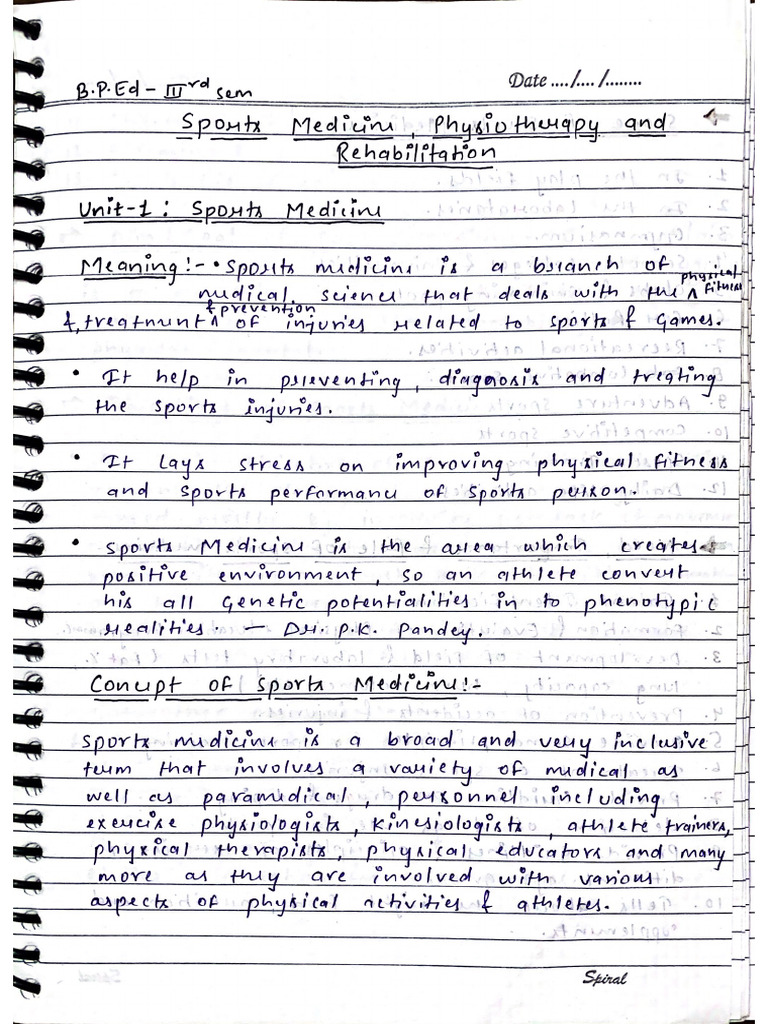 B.P.Ed - IIIrd sem
Date ..../..../........
Sports Medicine, Physiotherapy and
Rehabilitation
Unit-1: Sports Medicine
Meaning:- • Sports medicine is a branch of
medical science that deals with the physical fitness
&, treatment & prevention of injuries related to sports & Games.
• It help in preventing, diagnosis and treating
the sports injuries.
• It lays stress on improving physical fitness
and sports performance of sports person.
• Sports Medicine is the area which creates
positive environment, so an athlete convert
his all Genetic potentialities in to phenotypic
realities. - Dr. P.K. Pandey.
Concept of Sports Medicine:-
Sports medicine is a broad and very inclusive
term that involves a variety of medical as
well as paramedical, personnel including
exercise physiologists, kinesiologists, athlete trainers,
physical therapists, physical educators and many
more as they are involved with various
aspects of physical activities & athletes.
Spiral